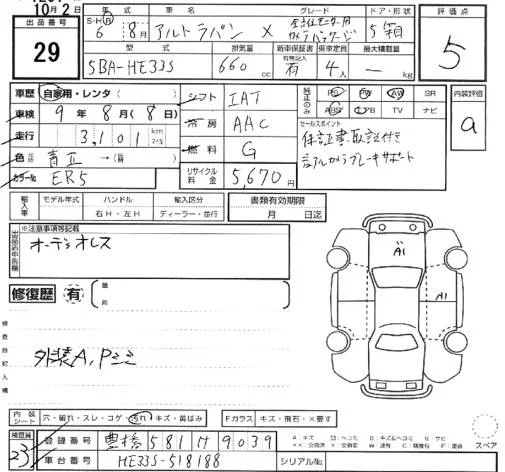 10月2日
出品番号
29
年式 車名 グレード ドア・形状
S・H・R 6年8月 アルトラパン X 全方位モニター用カメラパッケージ 5箱
型式 排気量 新車保証書 有無記入 乗車定員 最大積載量
5BA-HE33S 660cc 有 4人 ― kg
評価点
5
車歴 自家用・レンタ( )
車検 9年8月(8日)
走行 3,101 km マイル
色 青 → ( )
カラーNo ER5
シフト IAT
冷房 AAC
燃料 G
リサイクル料金 5,670円
純正のみ PS PW AW SR
ABS エアB TV ナビ
セールスポイント
保証書・取説付き
ブレーキサポート
内装評価
a
輸入車 モデル年式 ハンドル 右H・左H 輸入区分 ディーラー・並行
書類有効期限 月 日迄
出品店申告欄
※注意事項等記載
オーディオレス
修復歴 有 箇所
検査員記入欄
外装A,Pミミ
A1
A1
内装シート 穴・破れ・スレ・コゲ・汚れ・キズ・黄ばみ
Fガラス キズ・飛石・×要す
スペア
検査員 23
登録番号 豊橋 581 9039
車台番号 HE33S-518188
シリアルNo.
A:キズ